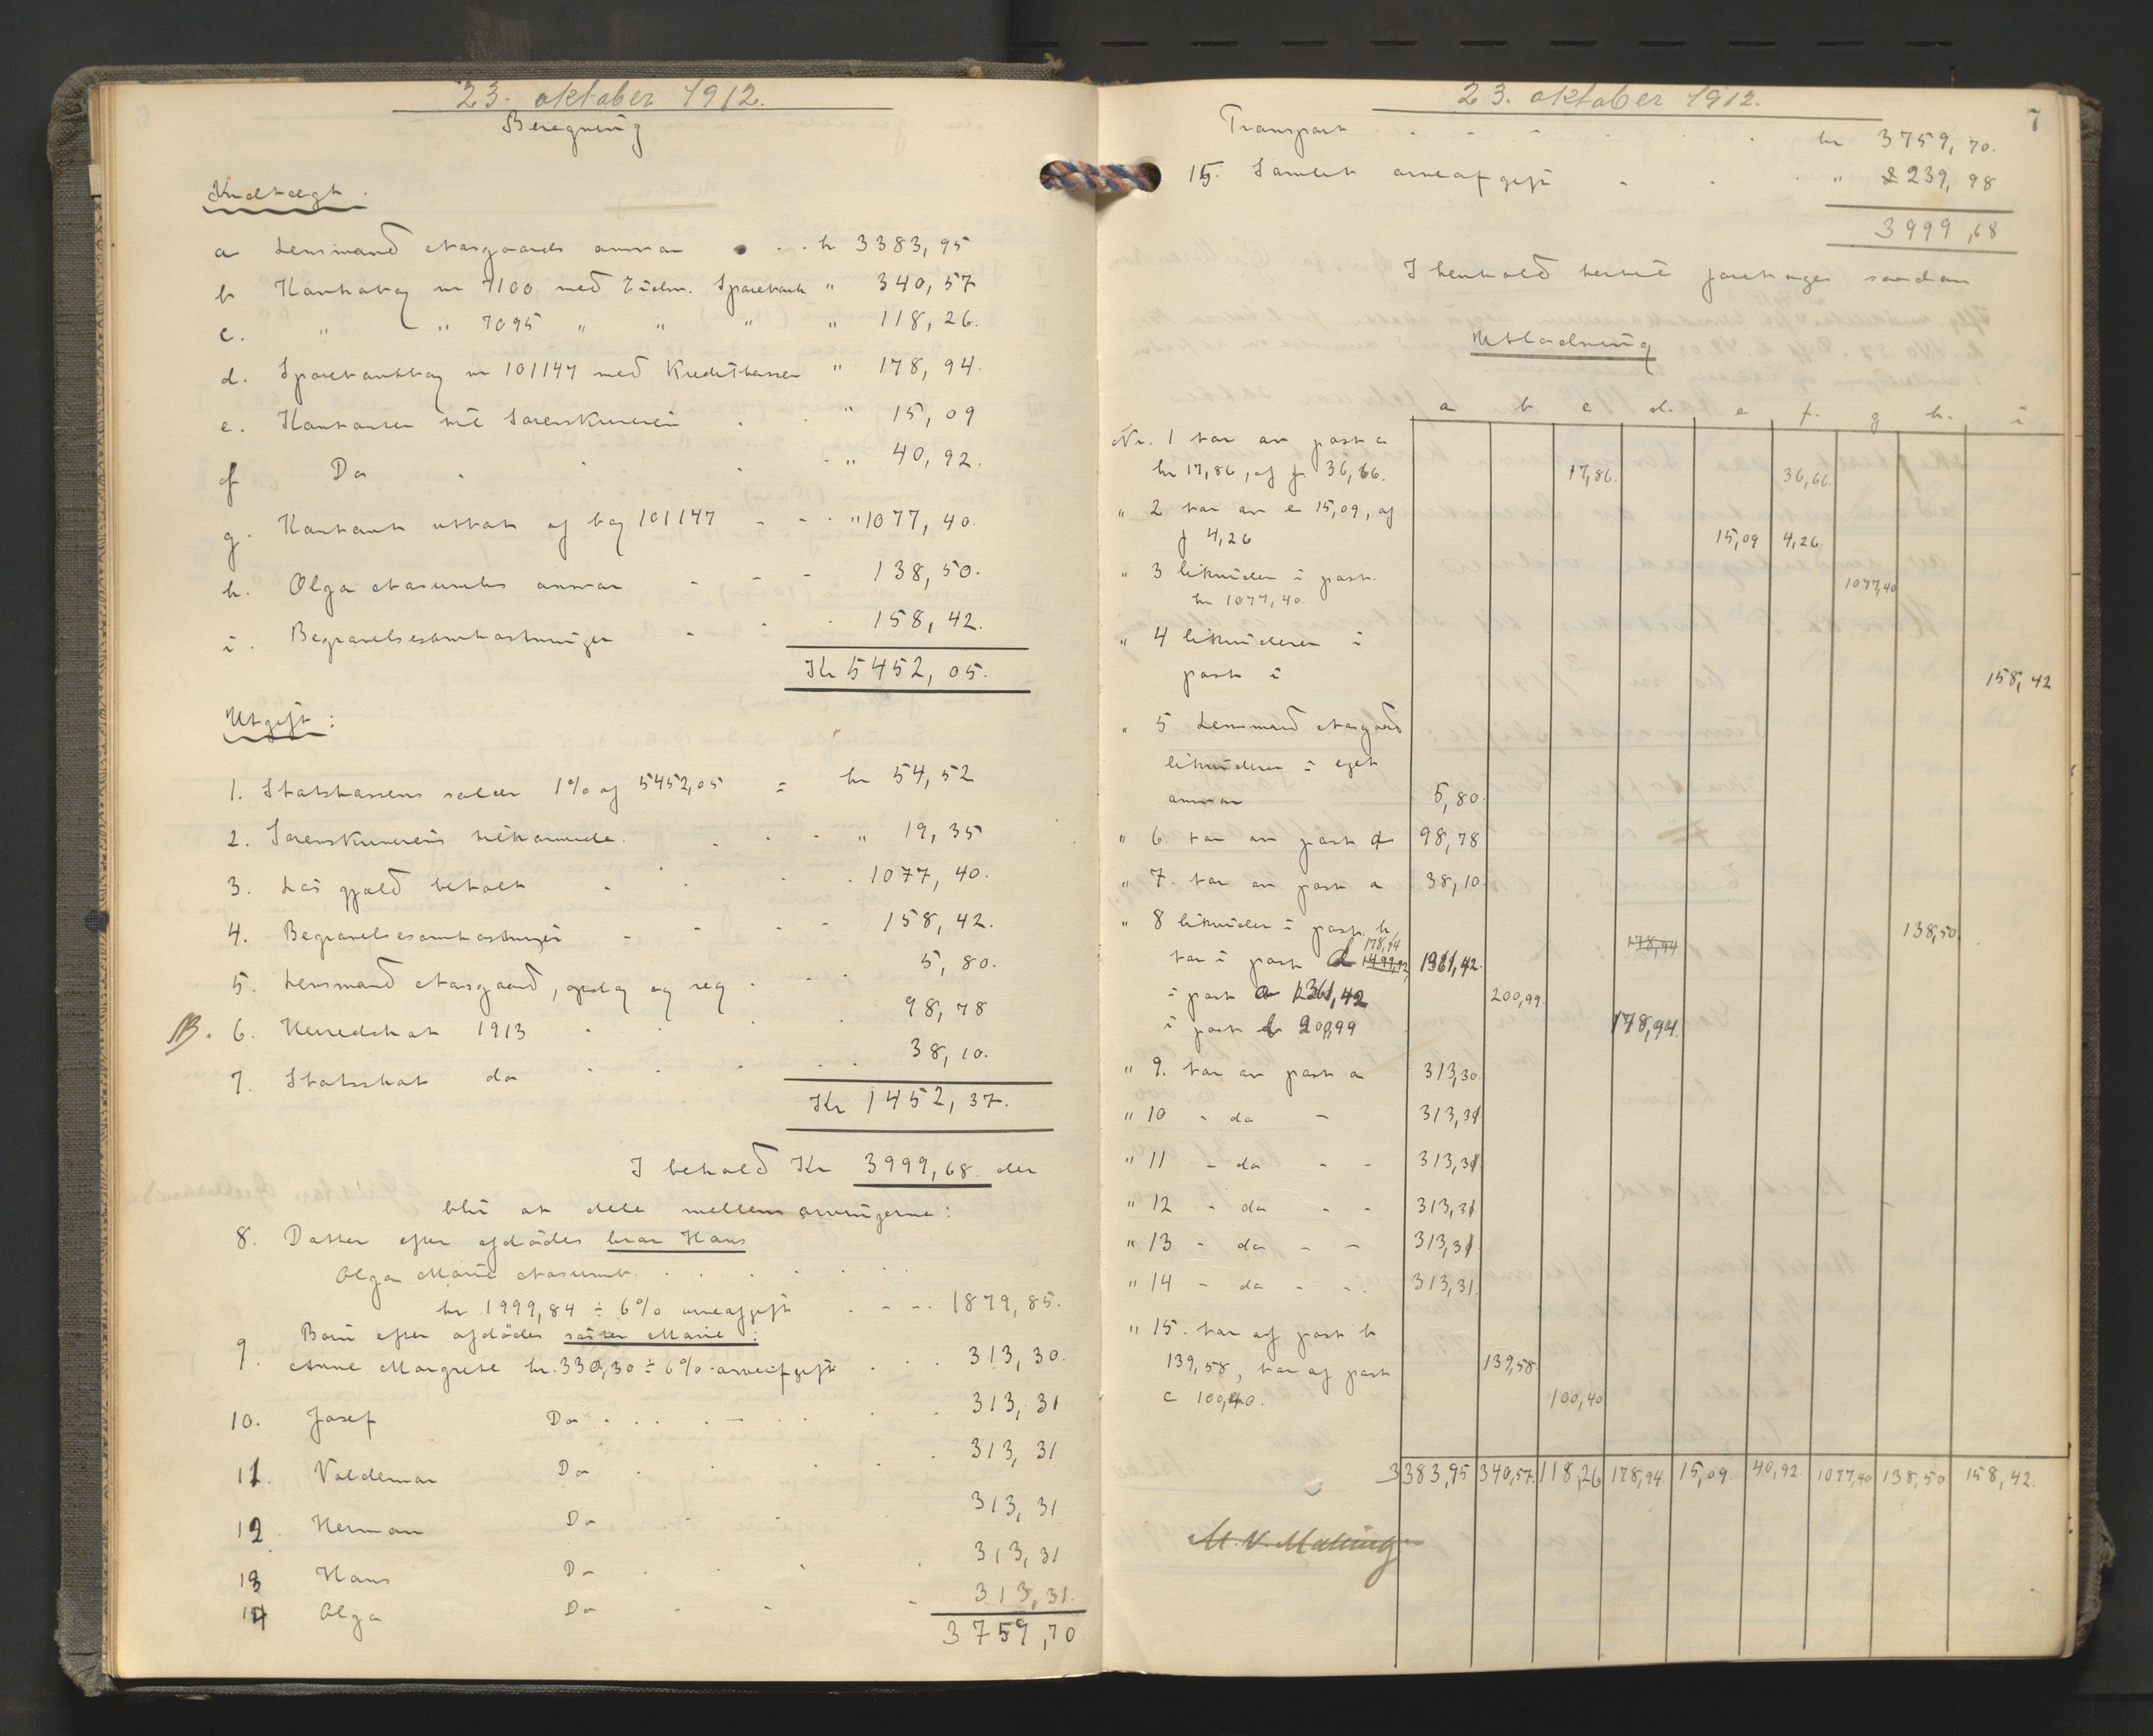 23. oktober 1912.
Beregning
Indtægt.
a Lensmand Aasgaards ansvar . . kr 3383,95
b Kontobog nr 7100 med Eidsv. Sparebank " 340,57
c. " " 7095 " " " " 118,26.
d. Sparebankbog nr 101147 med Kreditkassen " 178,94.
e. Kontanter til Sorenskriveren . . " 15,09
f Do . . . " 40,92.
g. Kontant uttat af bog 101147 - - . "1077,40.
h. Olga Aasunds ansvar - - - 138,50.
i. Begravelsesomkostninger - - . 158,42.
Kr 5452,05.
Utgift:
1. Statskassens salær 1% af 5452,05 = kr 54,52
2. Sorenskriverens tilkommende. . . - " 19,35
3. Løs gjæld betalt . . . . 1077,40.
4. Begravelsesomkostninger - - - - 158,42.
5. Lensmand Aasgaard, opdeg og reg . . . 5,80.
NB. 6. Herredskat 1913 . . 98,78
7. Statsskat do . . . . 38,10.
Kr 1452,37.
I behold Kr 3999,68. der
blir at dele mellem arvingerne:
8. Datter efter afdødes bror Hans
Olga Marie Aasunds. . . . . . .
kr 1999,84 ÷ 6% arveafgift . - - . 1879,85.
9. Barn efter afdødes søster Marie:
Anne Margrete kr. 330,30 ÷ 6% arveafgift . . . 313,30.
10. Josef Do . . . - . . . 313,31
11. Valdemar Do . . . . . 313,31
12. Herman Do . . 313,31
13 Hans Do . . . . 313,31
14 Olga Do - - - 313,31.
3759,70
23. oktober 1912.
7
Transport . - - . . . kr 3759,70.
15. Samlet arveafgift - . . " 239,98
3999,68
I henhold hertil foretages saadan
Utlodning
a b c d. e f. g h. i
Nr. 1 tar av post c
kr 17,86, af f. 36,66. 17,86. 36,66.
" 2 tar av e 15,09, af
f 4,26 15,09 4,26.
" 3 likvider i post.
kr 1077,40. 1077,40
" 4 likviderer i
post i 158,42
" 5 Lensmand Aasgaard
likviderer i eget
ansvar 5,80.
" 6. tar av post a 98,78
" 7. tar av post a 38,10.
" 8 likvider i post h, 138,50.
178,94 178,94
tar i post d 1499,92, 1361,42.
i post a 1361,42 200,99.
i post b 200,99 178,94.
" 9. tar av post a 313,30.
" 10 - do - 313,31
" 11 - do - - 313,31
" 12 - do - - 313,31.
" 13 - do - - 313,31
" 14 - do - - . 313,31.
" 15. tar af post b
139,58, tar af post 139,58.
c 100,40. 100,40
3383,95 340,57. 118,26 178,94 15,09. 40,92. 1077,40 138,50 158,42.